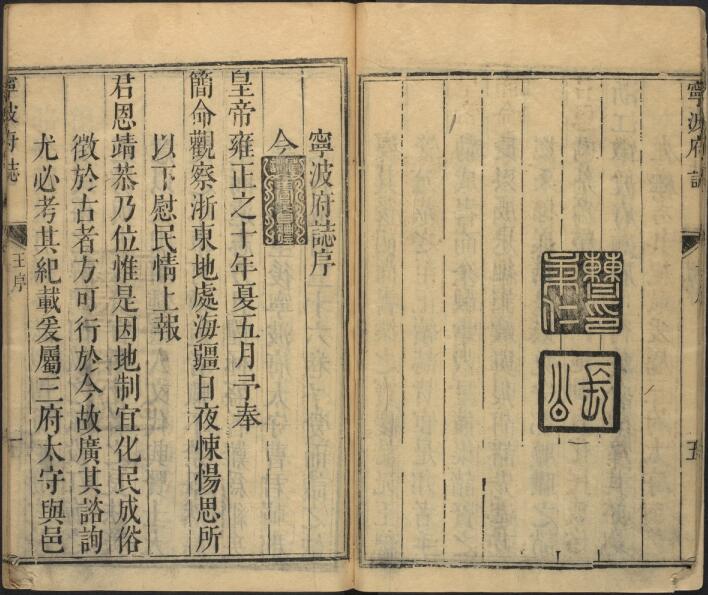 寧波府誌
五
曹印秉仁
長公
寧波府誌序
今
皇帝雍正之十年夏五月予奉
簡命觀察浙東地處海疆日夜悚惕思所
以下慰民情上報
君恩靖恭乃位惟是因地制宜化民成俗
徵於古者方可行於今故廣其諮詢
尤必考其紀載爰屬三府太守與邑
寧波府誌
王序
一